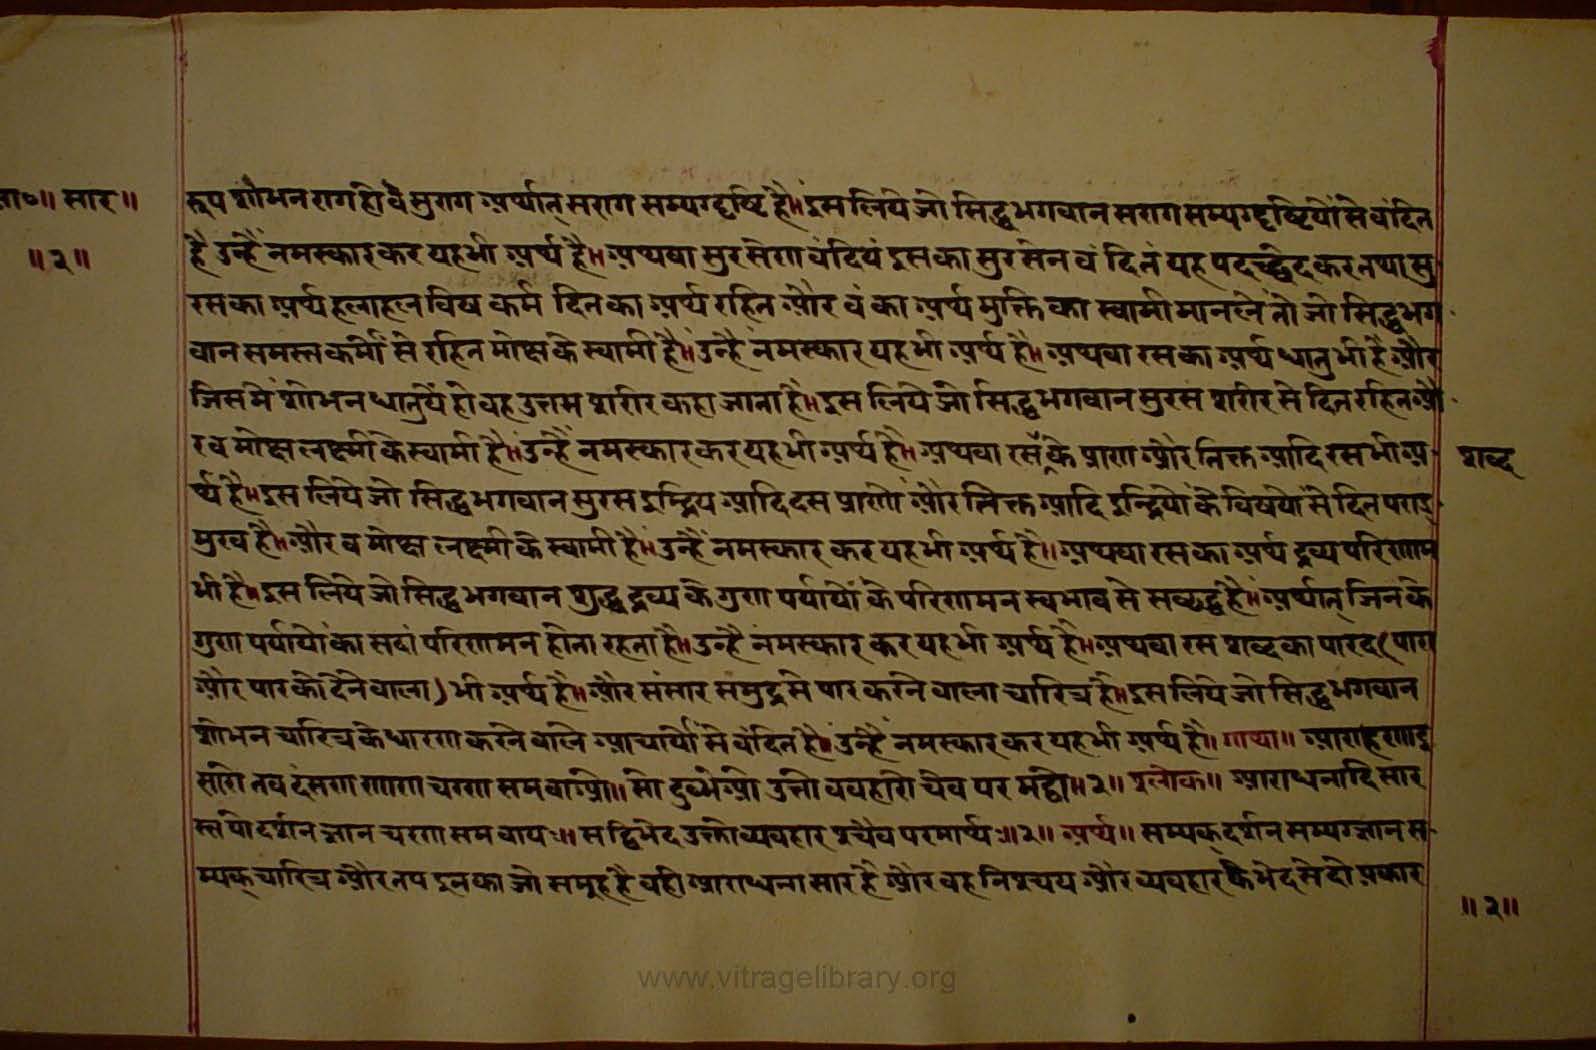 रा०॥ सार॥
॥२॥
रूप शोभन राग होवे सुराग अर्थात् सराग सम्यग्दृष्टि है॥ इस लिये जो सिद्ध भगवान सराग सम्यग्दृष्टियों से वंदित
है उन्हैं नमस्कार कर यह भी अर्थ है॥ अथवा सुरसेणा वंदियं इसका सुरसेन वं दितं यह पदच्छेद कर तथा सु
रस का अर्थ हलाहल विष कर्म दित का अर्थ रहित और वं का अर्थ मुक्ति का स्वामी मानलें तो जो सिद्ध भग
वान समस्त कर्मों से रहित मोक्ष के स्वामी है॥ उन्हैं नमस्कार यह भी अर्थ है॥ अथवा रस का अर्थ धातु भी है और
जिसमें शोभन धातुयें हो वह उत्तम शरीर कहा जाता है॥ इस लिये जो सिद्ध भगवान सुरस शरीर से दित रहित औ
र व मोक्ष लक्ष्मी के स्वामी है॥ उन्हैं नमस्कार कर यह भी अर्थ है॥ अथवा रस के प्राण और तिक्त आदि रस भी अ
शब्द
र्थ है॥ इस लिये जो सिद्ध भगवान सुरस इन्द्रिय आदि दस प्राणों और तिक्त आदि इन्द्रियों के विषयों से दित पराङ्
मुख है॥ और व मोक्ष लक्ष्मी के स्वामी है॥ उन्हैं नमस्कार कर यह भी अर्थ है॥ अथवा रस का अर्थ द्रव्य परिणाम
भी है॥ इस लिये जो सिद्ध भगवान शुद्ध द्रव्य के गुण पर्यायों के परिणामन स्वभाव से समृद्ध है॥ अर्थात् जिनके
गुण पर्यायों का सदां परिणामन होता रहता है॥ उन्हैं नमस्कार कर यह भी अर्थ है॥ अथवा रस शब्द का पारद (पारा
और पार को देने वाला) भी अर्थ है॥ और संसार समुद्र से पार करने वाला चारित्र है॥ इस लिये जो सिद्ध भगवान
शोभन चारित्र के धारण करने वाले आचार्यों से वंदित है॥ उन्हैं नमस्कार कर यह भी अर्थ है॥ गाथा॥ आराहणाइ
सारो तव दंसण णाण चरण समवाओ॥ सो दुब्भेओ उत्तो ववहारो चेव परमट्ठो॥२॥ श्लोक॥ आराधनादि सार
स्तपो दर्शन ज्ञान चरण समवायः॥ स द्विभेद उक्तो व्यवहारश्चैव परमार्थः॥२॥ अर्थ॥ सम्यक् दर्शन सम्यग्ज्ञान स
म्यक् चारित्र और तप इनका जो समूह है वही आराधना सार है और वह निश्चय और व्यवहार के भेद से दो प्रकार
॥२॥
www.vitragelibrary.org